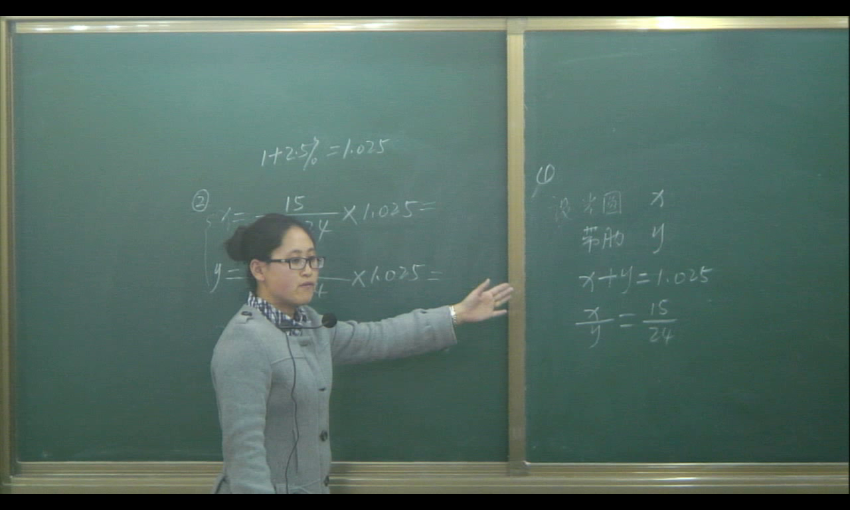 1+2.5%=1.025
②
15
24 ×1.025=
y= ×1.025=
①
设光圆 x
带肋 y
x+y=1.025
x/y=15/24